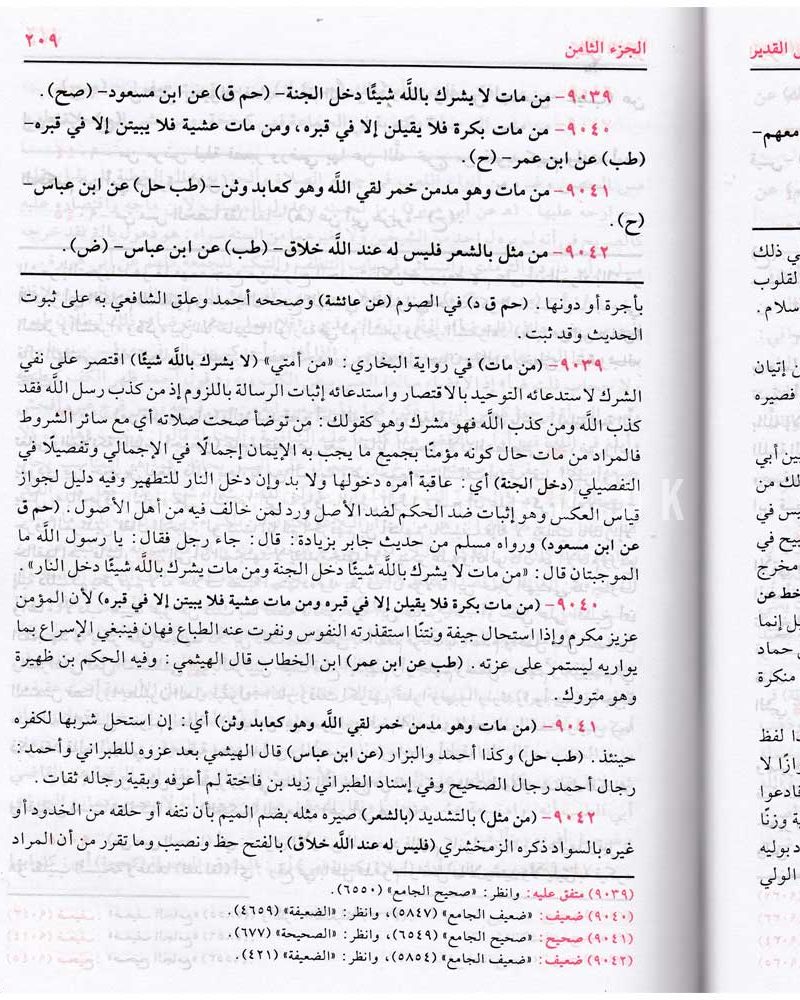 الجزء الثامن ٢٠٩
٩٠٣٩- من مات لا يشرك باللَّه شيئًا دخل الجنة- (حم ق) عن ابن مسعود- (صح).
٩٠٤٠- من مات بكرة فلا يقيلن إلا في قبره، ومن مات عشية فلا يبيتن إلا في قبره-
(طب) عن ابن عمر- (ح).
٩٠٤١- من مات وهو مدمن خمر لقي اللَّه وهو كعابد وثن- (طب حل) عن ابن عباس-
(ح).
٩٠٤٢- من مثل بالشعر فليس له عند اللَّه خلاق- (طب) عن ابن عباس- (ض).
بأجرة أو دونها. (حم ق د) في الصوم (عن عائشة) وصححه أحمد وعلق الشافعي به على ثبوت
الحديث وقد ثبت.
٩٠٣٩- (من مات) في رواية البخاري: «من أمتي» (لا يشرك باللَّه شيئًا) اقتصر على نفي
الشرك لاستدعائه التوحيد بالاقتصار واستدعائه إثبات الرسالة باللزوم إذ من كذب رسل اللَّه فقد
كذب اللَّه ومن كذب اللَّه فهو مشرك وهو كقولك: من توضأ صحت صلاته أي مع سائر الشروط
فالمراد من مات حال كونه مؤمنًا بجميع ما يجب به الإيمان إجمالًا في الإجمالي وتفصيلًا في
التفصيلي (دخل الجنة) أي: عاقبة أمره دخولها ولا بد وإن دخل النار للتطهير وفيه دليل لجواز
قياس العكس وهو إثبات ضد الحكم لضد الأصل ورد لمن خالف فيه من أهل الأصول. (حم ق
عن ابن مسعود) ورواه مسلم من حديث جابر بزيادة: قال: جاء رجل فقال: يا رسول اللَّه ما
الموجبتان قال: «من مات لا يشرك باللَّه شيئًا دخل الجنة ومن مات يشرك باللَّه شيئًا دخل النار».
٩٠٤٠- (من مات بكرة فلا يقيلن إلا في قبره ومن مات عشية فلا يبيتن إلا في قبره) لأن المؤمن
عزيز مكرم وإذا استحال جيفة ونتنًا استقذرته النفوس ونفرت عنه الطباع فهان فينبغي الإسراع بما
يواريه ليستمر على عزته. (طب عن ابن عمر) ابن الخطاب قال الهيثمي: وفيه الحكم بن ظهيرة
وهو متروك.
٩٠٤١- (من مات وهو مدمن خمر لقي اللَّه وهو كعابد وثن) أي: إن استحل شربها لكفره
حينئذ. (طب حل) وكذا أحمد والبزار (عن ابن عباس) قال الهيثمي بعد عزوه للطبراني وأحمد:
رجال أحمد رجال الصحيح وفي إسناد الطبراني زيد بن فاختة لم أعرفه وبقية رجاله ثقات.
٩٠٤٢- (من مثل) بالتشديد (بالشعر) صيره مثله بضم الميم بأن نتفه أو حلقه من الخدود أو
غيره بالسواد ذكره الزمخشري (فليس له عند اللَّه خلاق) بالفتح حظ ونصيب وما تقرر من أن المراد
(٩٠٣٩) متفق عليه: وانظر: «صحيح الجامع» (٦٥٥٠).
(٩٠٤٠) ضعيف: «ضعيف الجامع» (٥٨٤٧)، وانظر: «الضعيفة» (٤٦٥٩).
(٩٠٤١) صحيح: «صحيح الجامع» (٦٥٤٩)، وانظر: «الصحيحة» (٦٧٧).
(٩٠٤٢) ضعيف: «ضعيف الجامع» (٥٨٥٤)، وانظر: «الضعيفة» (٤٢١).
القدير
معهم-
ي ذلك
لقلوب
سلام.
ن إتيان
فصيره
بين أبي
لك من
يس في
بيح في
مخرج
خط عن
ل إنما
حماد
منكرة
ا لفظ
ازًا لا
قادعوا
ة وزنًا
د بوليه
الولي